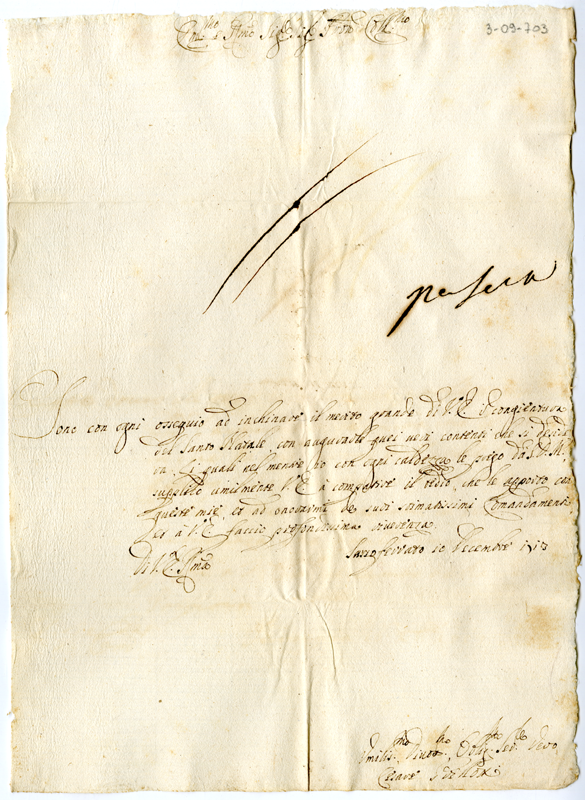 3-09-703
Sig.
Sono con ogni ossequio ad inchinare il merto grande di V. E. congiuntura
del Santo Natale con augurarle quei veri contenti che si deside
ra. Li quali nel mentre io con ogni caldezza le prego da S. D. M.
supplico umilmente V. E. a compatire il tedio che le apporto con
queste mie, et ad onorarmi de suoi stimatissimi Comandamenti
et a V. E. faccio profondissima riverenza
Di V. E. Ill.ma
Sassoferrato 10 Decembre
Umilis.mo Divot.mo Oblig. Ser.
Cesare